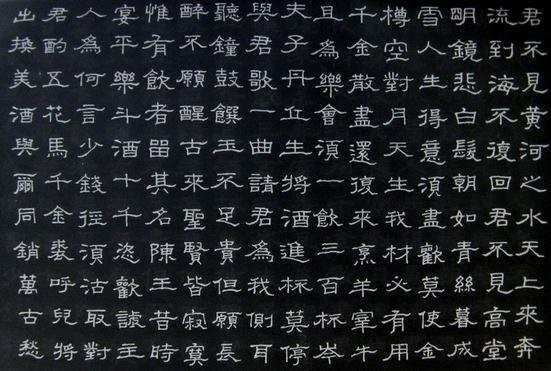 君不見黃河之水天上來奔
流到海不復回君不見高堂
明鏡悲白髮朝如青絲暮成
雪人生得意須盡歡莫使金
樽空對月天生我材必有用
千金散盡還復來烹羊宰牛
且為樂會須一飲三百杯岑
夫子丹丘生將酒進杯莫停
與君歌一曲請君為我側耳
聽鐘鼓饌玉不足貴但願長
醉不願醒古來聖賢皆寂寞
惟有飲者留其名陳王昔時
宴平樂斗酒十千恣歡謔主
人為何言少錢徑須沽取對
君酌五花馬千金裘呼兒將
出換美酒與爾同銷萬古愁